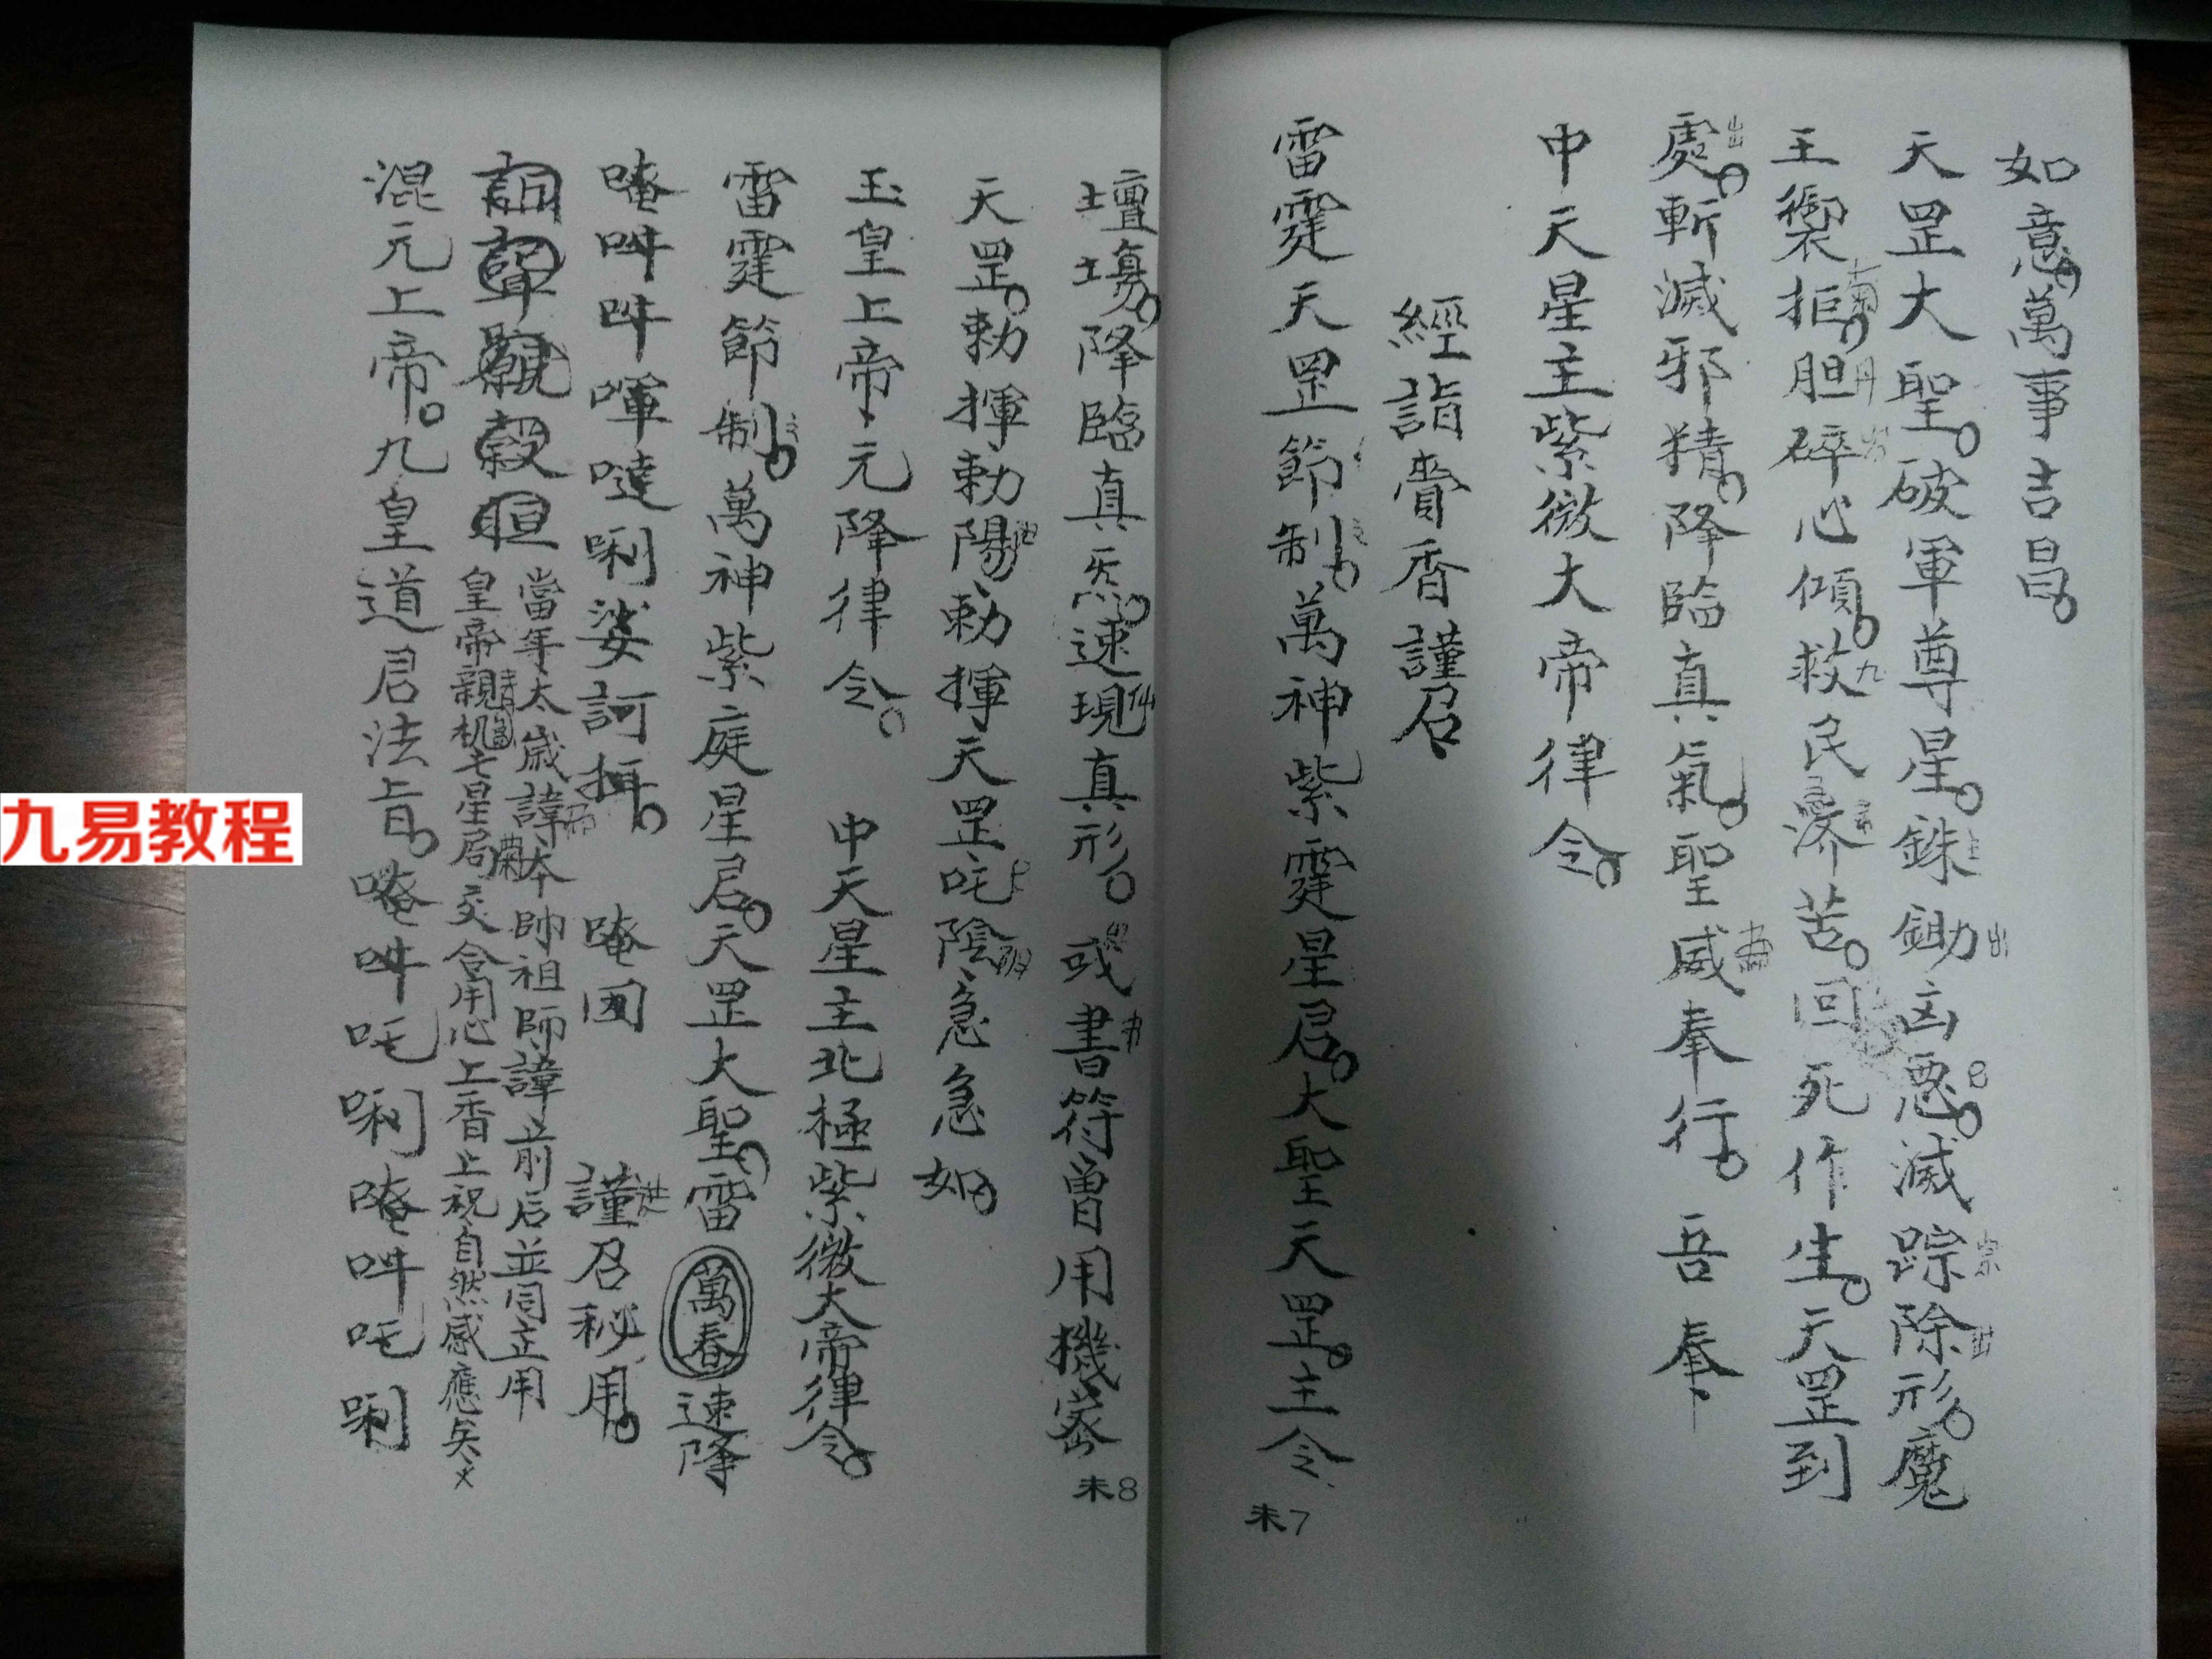 如意。萬事吉昌。
天罡大聖。破軍尊星。銖鋤凶惡。滅踪除形。魔
王禦拒。胆碎心傾。救民濟苦。回死作生。天罡到
處。斬滅邪精。降臨真氣。聖威奉行。吾奉
中天星主紫微大帝律令。
經詣賫香謹召
雷霆天罡節制。萬神紫霆星君。大聖天罡。主令
未7
壇場。降臨真炁。速現真形。或書符曾用機密
天罡。勅揮勅陽、勅揮天罡吒陰、急急如
玉皇上帝、元降律令。 中天星主北極紫微大帝律令。
雷霆節制。萬神紫庭星君。天罡大聖。雷萬春速降
唵吽吽㖶噠唎娑訶 唵囮 謹召秘用。
當年太歲諱本帥祖師諱前后並同立用
皇帝親机七星局交合用心上香上祝自然感應矣
混元上帝。九皇道君法旨。唵吽吒唎唵吽吒唎
未8
九易教程